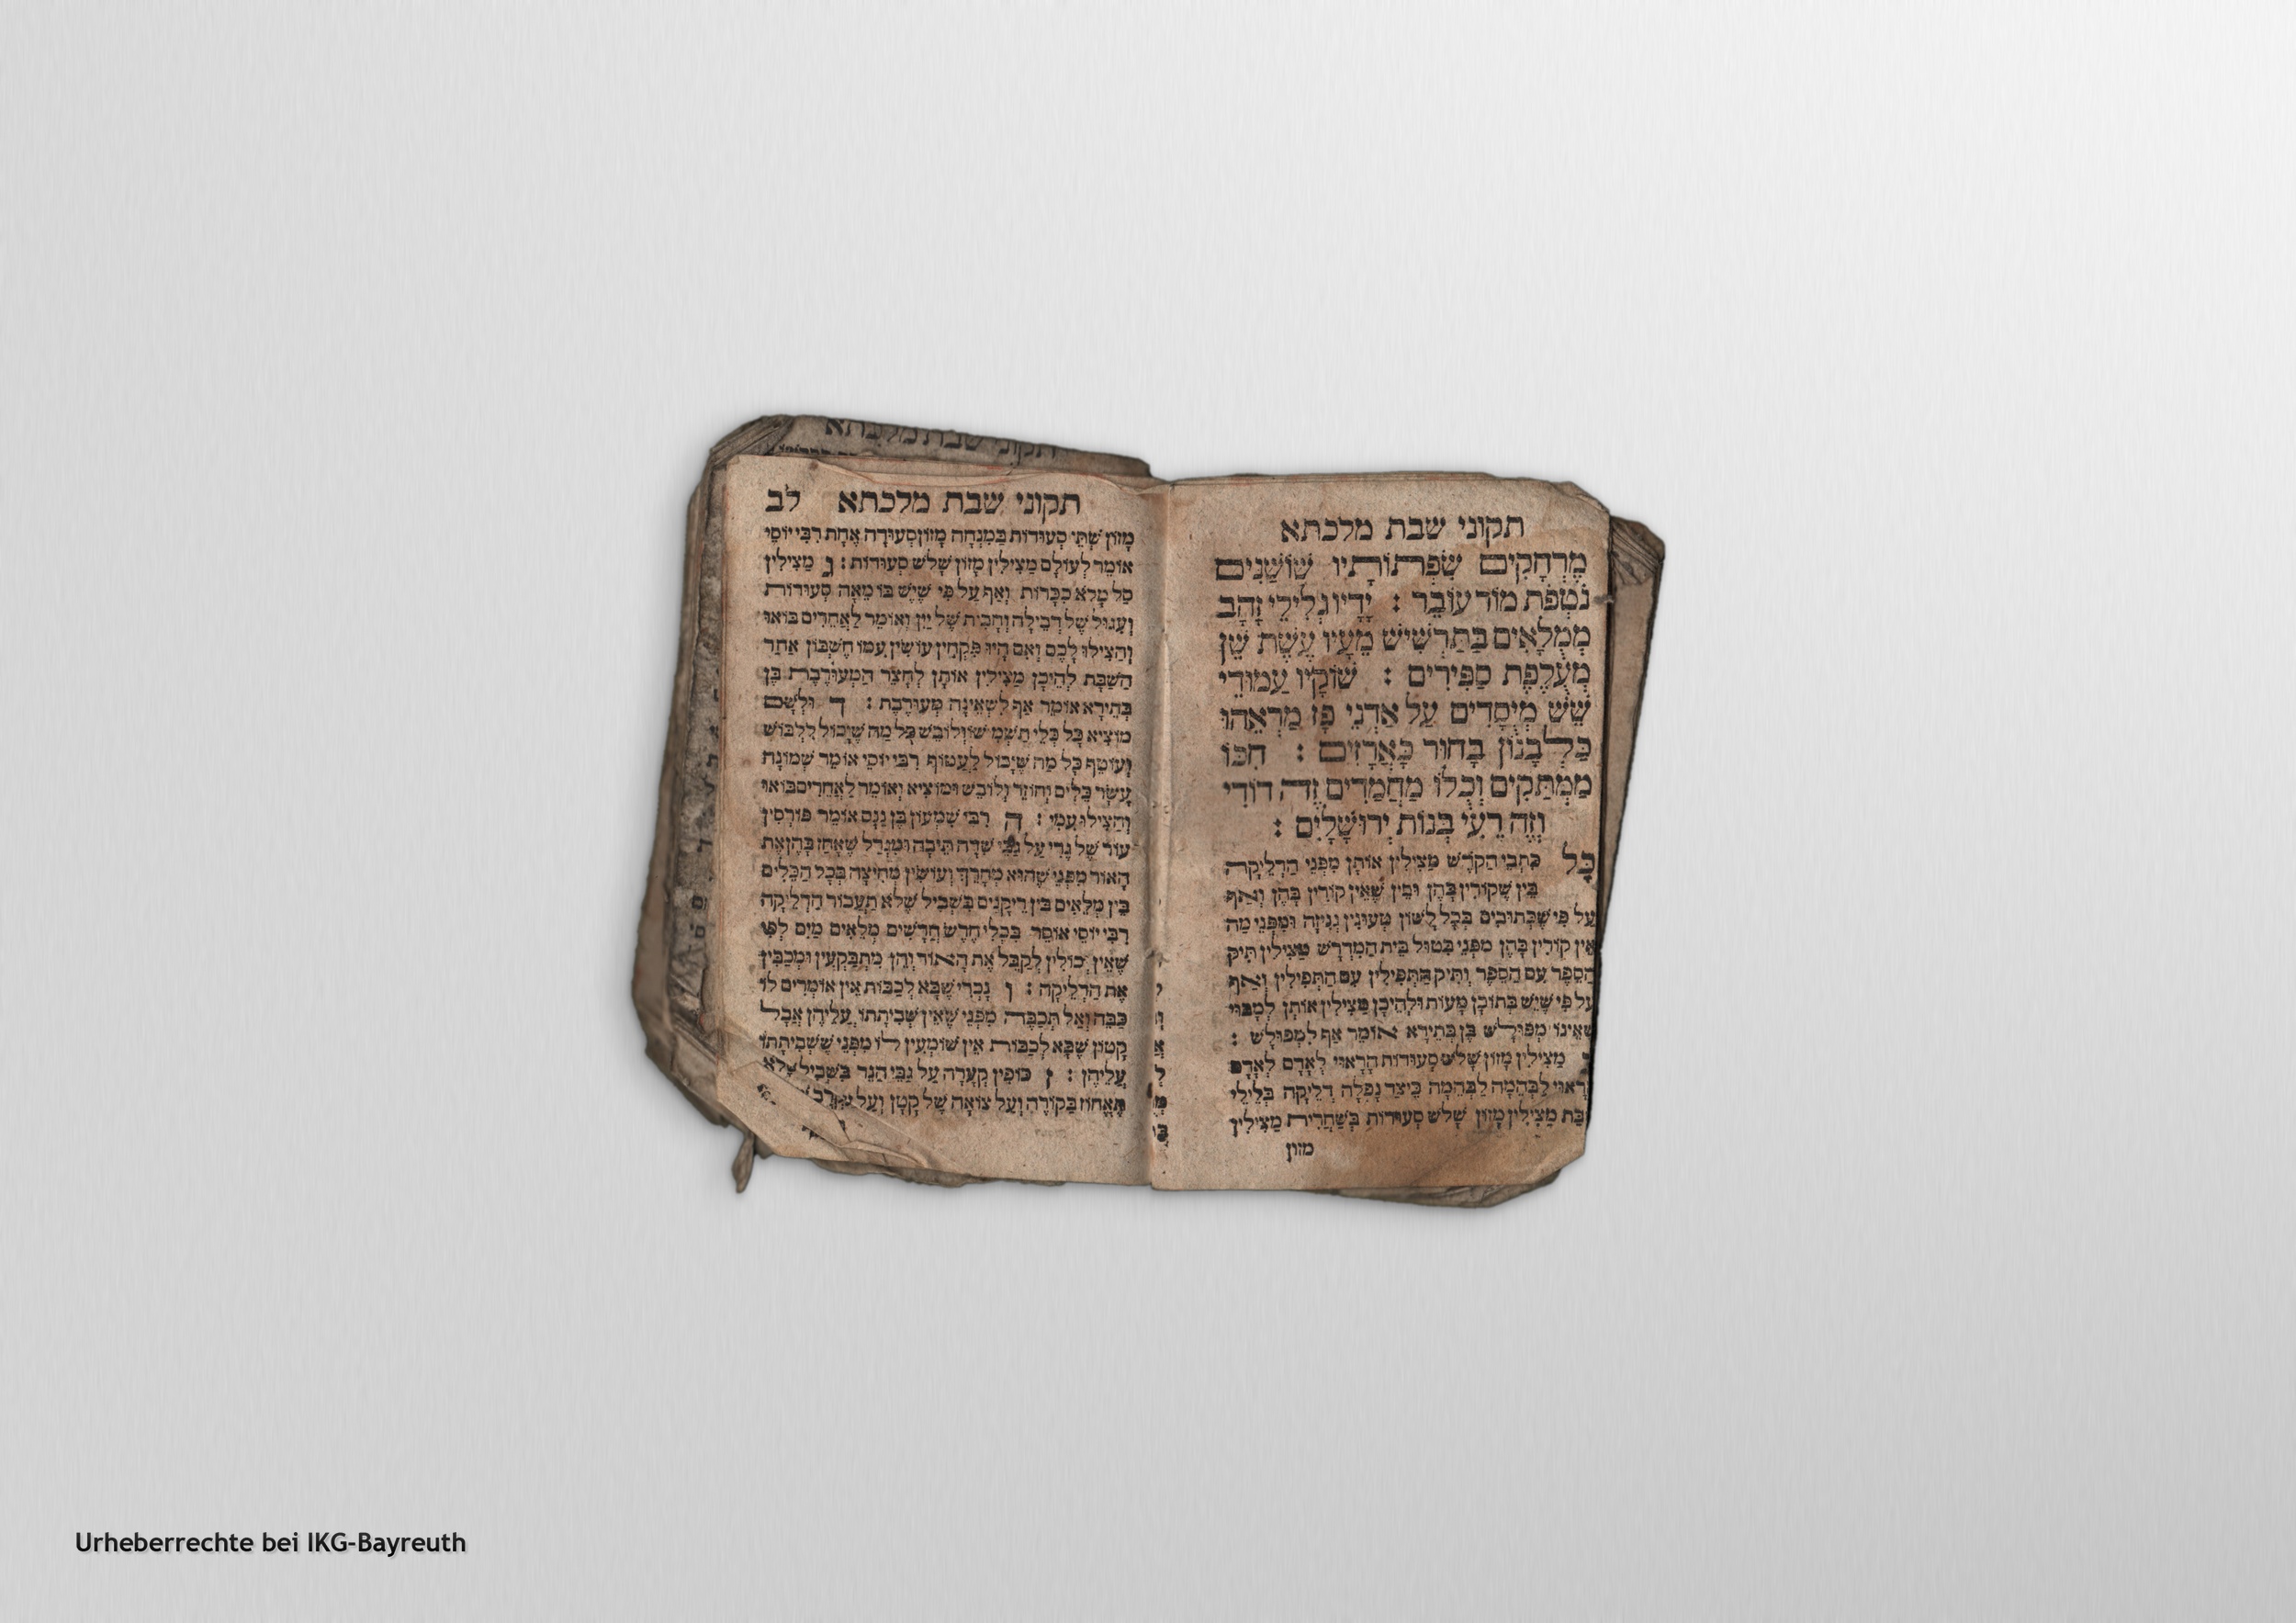 תקוני שבת מלכתא
מֶרְחָקִים שִׂפְתוֹתָיו שׁוֹשַׁנִּים
נֹטְפֹת מוֹר עוֹבֵר : יָדָיו גְּלִילֵי זָהָב
מְמֻלָּאִים בַּתַּרְשִׁישׁ מֵעָיו עֶשֶׁת שֵׁן
מְעֻלֶּפֶת סַפִּירִים : שׁוֹקָיו עַמּוּדֵי
שֵׁשׁ מְיֻסָּדִים עַל אַדְנֵי פָז מַרְאֵהוּ
כַּלְּבָנוֹן בָּחוּר כָּאֲרָזִים : חִכּוֹ
מַמְתַקִּים וְכֻלּוֹ מַחֲמַדִּים זֶה דוֹדִי
וְזֶה רֵעִי בְּנוֹת יְרוּשָׁלָיִם :
כָּל כִּתְבֵי הַקֹּדֶשׁ מַצִּילִין אוֹתָן מִפְּנֵי הַדְּלֵיקָה
בֵּין שֶׁקּוֹרִין בָּהֶן וּבֵין שֶׁאֵין קוֹרִין בָּהֶן וְאַף
עַל פִּי שֶׁכְּתוּבִים בְּכָל לָשׁוֹן טְעוּנִין גְּנִיזָה וּמִפְּנֵי מַה
אֵין קוֹרִין בָּהֶן מִפְּנֵי בִּטּוּל בֵּית הַמִּדְרָשׁ מַצִּילִין תִּיק
הַסֵּפֶר עִם הַסֵּפֶר וְתִיק הַתְּפִילִּין עִם הַתְּפִילִּין וְאַף
עַל פִּי שֶׁיֵּשׁ בְּתוֹכָן מָעוֹת וּלְהֵיכָן מַצִּילִין אוֹתָן לְמָבוּי
שֶׁאֵינוֹ מְפוּלָּשׁ בֶּן בְּתֵירָא אוֹמֵר אַף לִמְפוּלָּשׁ :
מַצִּילִין מָזוֹן שָׁלֹשׁ סְעוּדוֹת הָרָאוּי לְאָדָם לְאָדָם
רָאוּי לִבְהֵמָה לִבְהֵמָה כֵּיצַד נָפְלָה דְלֵיקָה בְּלֵילֵי
שַׁבָּת מַצִּילִין מָזוֹן שָׁלֹשׁ סְעוּדוֹת בְּשַׁחֲרִית מַצִּילִין
מזון
תקוני שבת מלכתא לב
מָזוֹן שְׁתֵּי סְעוּדוֹת בַּמִּנְחָה מָזוֹן סְעוּדָה אַחַת רִבִּי יוֹסֵי
אוֹמֵר לְעוֹלָם מַצִּילִין מָזוֹן שָׁלֹשׁ סְעוּדוֹת : ג מַצִּילִין
סַל מָלֵא כִכָּרוֹת וְאַף עַל פִּי שֶׁיֵּשׁ בּוֹ מֵאָה סְעוּדוֹת
וְעִגּוּל שֶׁל דְּבֵילָה וְחָבִית שֶׁל יַיִן וְאוֹמֵר לַאֲחֵרִים בּוֹאוּ
וְהַצִּילוּ לָכֶם וְאִם הָיוּ פִּקְחִין עוֹשִׂין עִמּוֹ חֶשְׁבּוֹן אַחַר
הַשַּׁבָּת לְהֵיכָן מַצִּילִין אוֹתָן לְחָצֵר הַמְעוּרֶבֶת בֶּן
בְּתֵירָא אוֹמֵר אַף לְשֶׁאֵינָהּ מְעוּרֶבֶת : ד וּלְשָׁם
מוֹצִיא כָּל כְּלֵי תַשְׁמִישׁוֹ וְלוֹבֵשׁ כָּל מַה שֶׁיָּכוֹל לִלְבּוֹשׁ
וְעוֹטֵף כָּל מַה שֶׁיָּכוֹל לַעֲטוֹף רִבִּי יוֹסֵי אוֹמֵר שְׁמוֹנָה
עָשָׂר כֵּלִים וְחוֹזֵר וְלוֹבֵשׁ וּמוֹצִיא וְאוֹמֵר לַאֲחֵרִים בּוֹאוּ
וְהַצִּילוּ עִמִּי : ה רִבִּי שִׁמְעוֹן בֶּן נַנָּס אוֹמֵר פּוֹרְסִין
עוֹר שֶׁל גְּדִי עַל גַּבֵּי שִׁדָּה תֵּיבָה וּמִגְדָּל שֶׁאָחַז בָּהֶן אֶת
הָאוּר מִפְּנֵי שֶׁהוּא מְחָרֵךְ וְעוֹשִׂין מְחִיצָה בְּכָל הַכֵּלִים
בֵּין מְלֵאִים בֵּין רֵיקָנִים בִּשְׁבִיל שֶׁלֹּא תַעֲבוֹר הַדְּלֵיקָה
רִבִּי יוֹסֵי אוֹסֵר בִּכְלֵי חֶרֶשׂ חֲדָשִׁים מְלֵאִים מַיִם לְפִי
שֶׁאֵין יְכוֹלִין לְקַבֵּל אֶת הָאוּר וְהֵן מִתְבַּקְּעִין וּמְכַבִּין
אֶת הַדְּלֵיקָה : ו נָכְרִי שֶׁבָּא לְכַבּוֹת אֵין אוֹמְרִים לוֹ
כַּבֵּה וְאַל תְּכַבֶּה מִפְּנֵי שֶׁאֵין שְׁבִיתָתוֹ עֲלֵיהֶן אֲבָל
קָטוֹן שֶׁבָּא לְכַבּוֹת אֵין שׁוֹמְעִין לוֹ מִפְּנֵי שֶׁשְּׁבִיתָתוֹ
עֲלֵיהֶן : ז כּוֹפִין קְעָרָה עַל גַּבֵּי הַנֵּר בִּשְׁבִיל שֶׁלֹּא
תֶּאֱחוֹז בַּקּוֹרָה וְעַל צוֹאָה שֶׁל קָטָן וְעַל
Urheberrechte bei IKG-Bayreuth